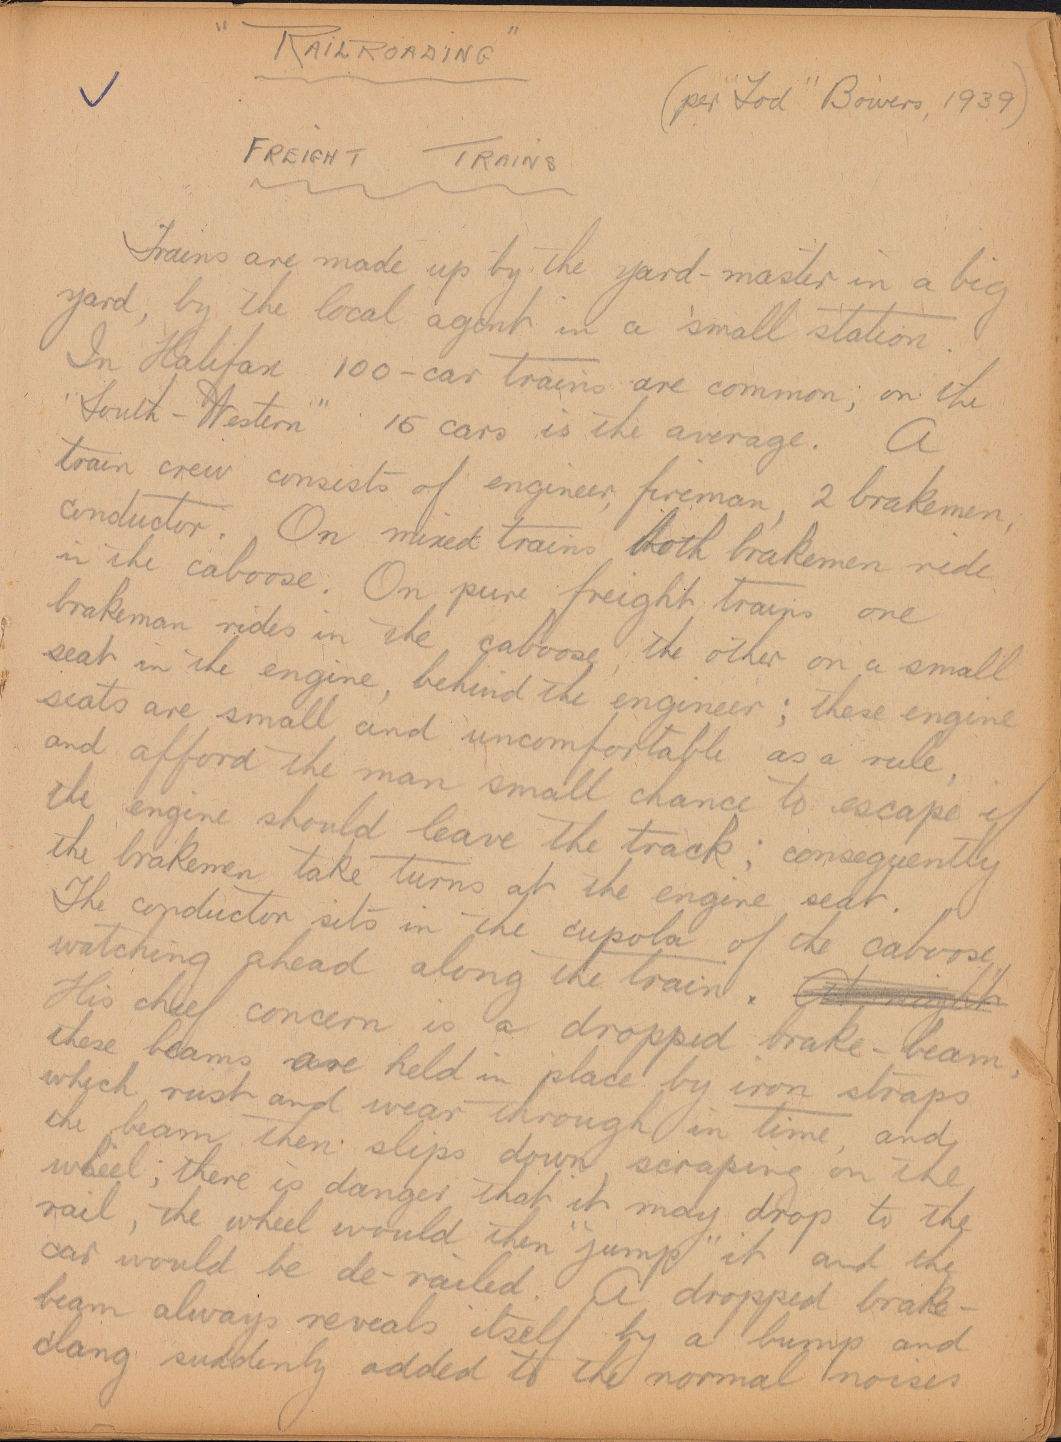 "RAILROADING"
(per "Tod" Bowers, 1939)
FREIGHT TRAINS
Trains are made up by the yard-master in a big
yard, by the local agent in a small station.
In Halifax 100-car trains are common; on the
"South-Western" 15 cars is the average. A
train crew consists of engineer, fireman, 2 brakemen,
conductor. On mixed trains both brakemen ride
in the caboose. On pure freight trains one
brakeman rides in the caboose, the other on a small
seat in the engine, behind the engineer; these engine
seats are small and uncomfortable as a rule,
and afford the man small chance to escape if
the engine should leave the track; consequently
the brakemen take turns at the engine seat.
The conductor sits in the cupola of the caboose,
watching ahead along the train. At night
His chief concern is a dropped brake-beam;
these beams are held in place by iron straps
which rust and wear through in time, and
the beam then slips down, scraping on the
wheel; there is danger that it may drop to the
rail, the wheel would then "jump" it and the
car would be de-railed. A dropped brake-
beam always reveals itself by a bump and
clang suddenly added to the normal noises